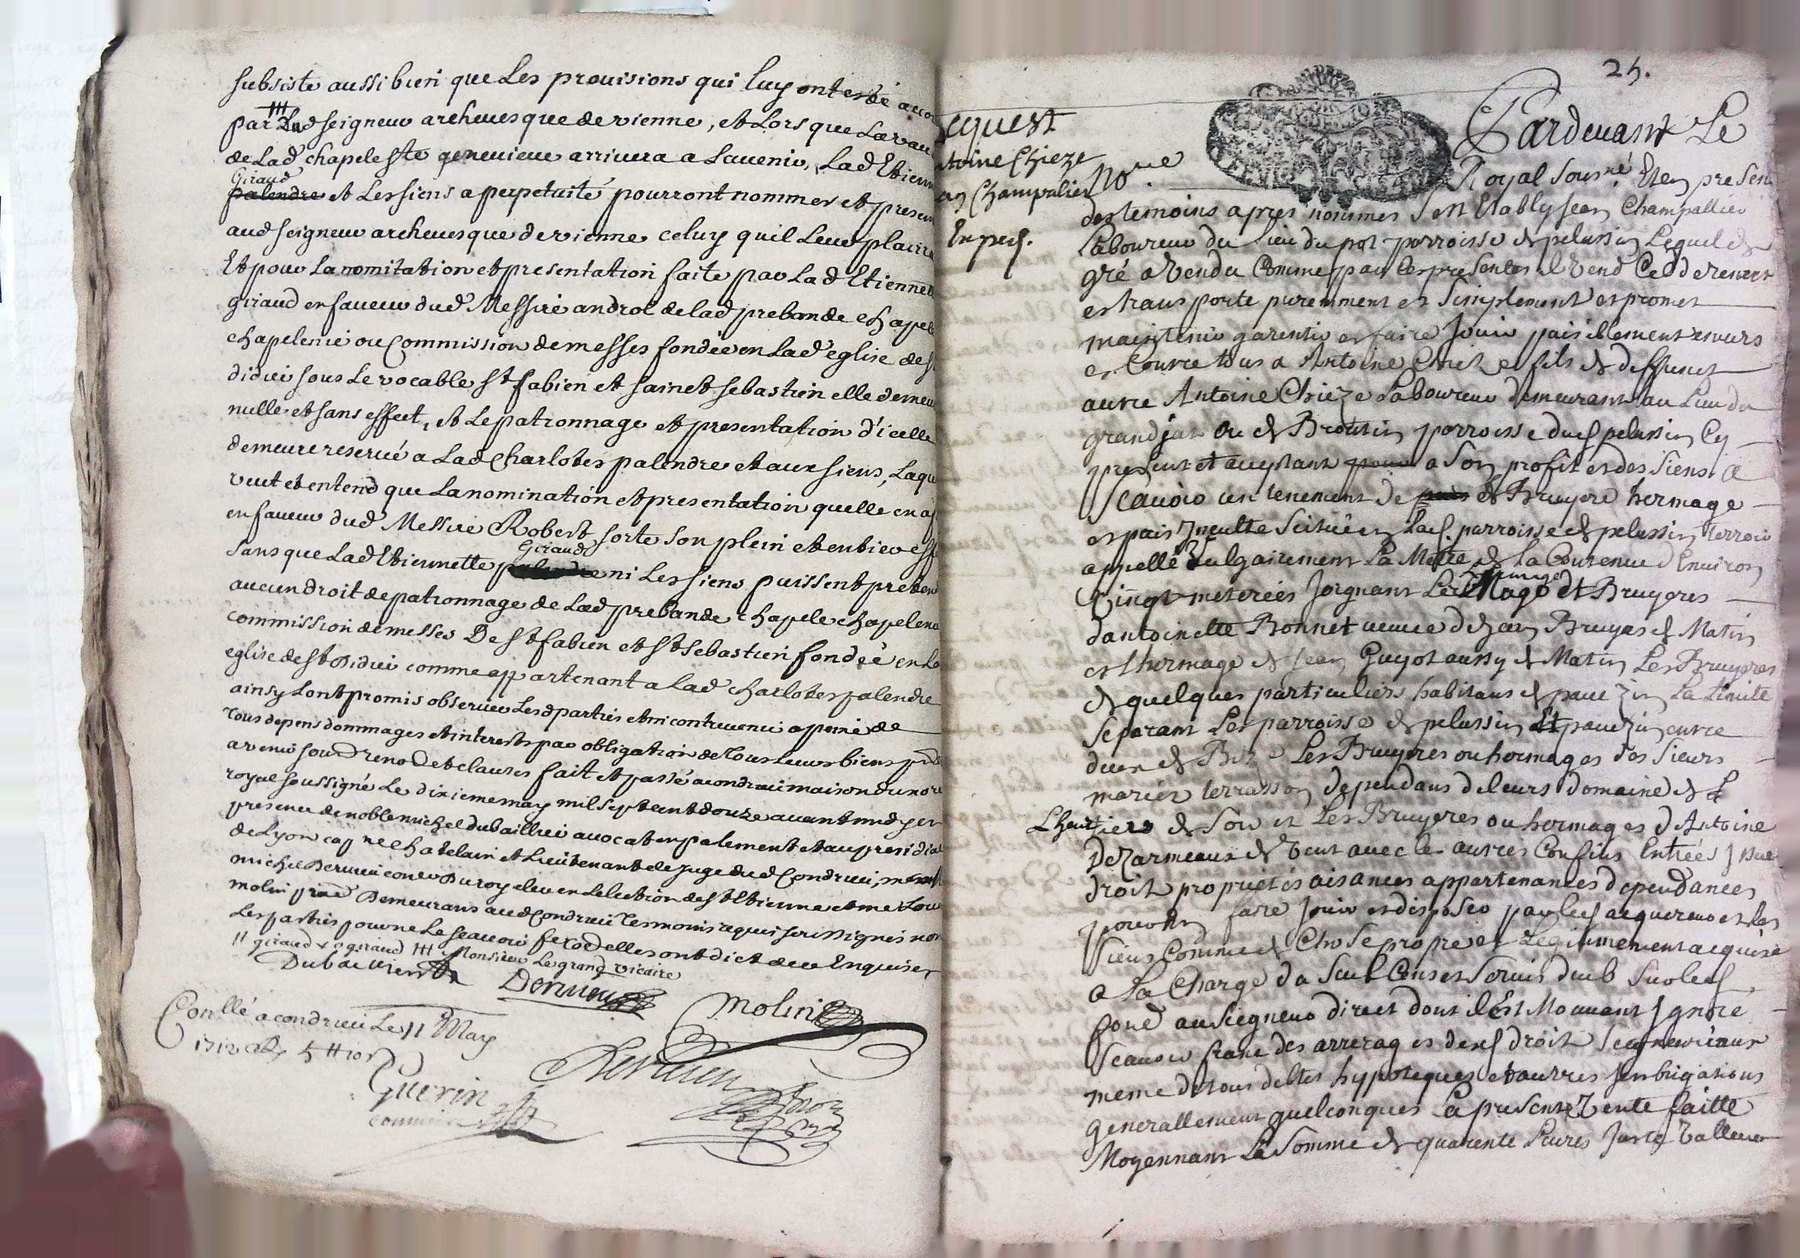 subsiste aussi bien que Les prouisions qui luy ont esté
par Led seigneur archeuesque de vienne, et Lors que La
de Lad chapele ste geneuieue arriuera a Lauenir, Lad Etienn
Giraud
palendre et Les siens a perpetuité pourront nommer et presen
aud seigneur archeuesque de vienne celuy quil Leur plaira
Et pour La nomitation et presentation faite par Lad Etiennet
giraud en faueur dud Messire androt de lad prebande chapel
chapelenie ou Commission de messes fondée en Lad eglise de
didier sous Le vocable st fabien et sainct sebastien elle demeu
nulle et sans effect, et Le patronnage et presentation d'icelle
demeure reserué a Lad Charlotes palendre et aux siens, Laqu
veut et entend que La nomination et presentation quelle en a
en faueur dud Messire Robert sorte son plein et entier eff
Giraud
sans que Lad Etiennette palendre ni Les siens puissent preten
aucun droit de patronnage de Lad prebande chapele chapelen
commission de messes De st fabien et st sebastien fondée en La
eglise de st Didier comme appartenant a Lad charlotes palendre
ainsy Lont promis obseruer Lesd parties et ni contreuenir a peine de
tous depens dommages et interests par obligation de tous Leurs biens
renod et clauses fait et passé a condrieu maison du no
royal soussigné Le dixieme may mil sept cent douze auant midy en
presence de noble michel dubaillier auocat en palement et au presidia
de Lyon cap ne chatelain et Lieutenant de Juge dud Condrieu,
michel Deruieu du roy eleu en Lelection de st Etienne et me Lou
molin Demeurans aud Condrieu temoins requis soussignés non
Les parties pour ne Le scauoir de ce Enquises
giraud giraud Monsieur Le grand vicaire
Deruieu
molin
Conllé a condrieu Le 11 May
1712
Deruieu
Guerin
commis
25.
cquest
toine Chieze
an Champalier
En ped.
Pardeuant Le
No.re Royal sous.né Et en presen
des temoins apres nommés sest Etably Jean Champallier
Laboureur du Lieu du pot parroisse de pelussin Lequel de
gré a Vendu Comme par les presentes il vend Cedde remet
et transporte purement et simplement et promet
maintenir garentir et faire Jouir paisiblement enuers
et Contre tous a Antoine Chieze fils de deffunct
autre Antoine Chieze Laboureur demeurant au Lieu du
grand jat ou de Broutin parroisse dud pelussin Cy
present et aceptant a Son profit et des Siens a
Scauoir un tenement de Bruyere hermage
et pais Jnculte Scitué en Lad. parroisse de pelussin terroir
appellé Vulgairement La Motte de La Couronne d'Enuiron
Vingt meterées Joignant Les et Bruyeres
dantoinette Bonnet veuue de Jean Bruyas de Matin
et Lhermage de Jean Guyot aussy de Matin Les Bruyeres
de quelques particuliers habitans de pauezin La Limite
Separant Les parroisse de pelussin Et pauezin entre
deux de Bize Les Bruyeres ou hermages des Sieurs
marier terrasson dependans de leurs domaine de L
Lheur de Soir et Les Bruyeres ou hermages d'Antoine
Dezarmeaux de Vent auec les autres Confins Entrées Jssue
droit proprietés aisances appartenances dependances
pouuoir faire Jouir et disposer par led acquereur et les
Siens Comme de Chose propre et Legitimement acquise
a La Charge du Seul Cens et Seruis deub Sur led
fond au Seigneur direct dont il Est Mouuant Jgnoré
Scauoir franc des arrerages desd droit Seigneuriaux
meme de tous debtes hypoteques et autres Jmbrigations
generallement quelconques La presente Vente faitte
Moyennant La Somme de quarente Liures Juste Valleur